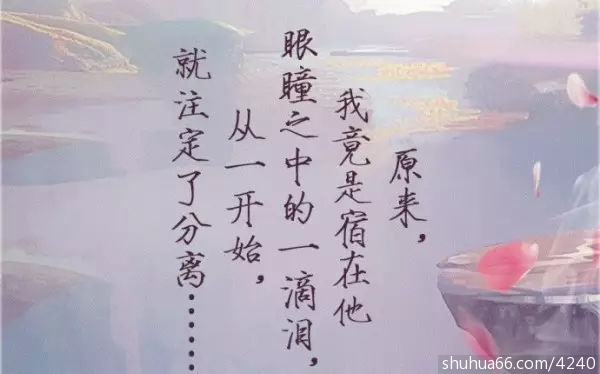 原来，
我竟是宿在他
眼瞳之中的一滴泪，
从一开始，
就注定了分离……
shuhua66.com/4240